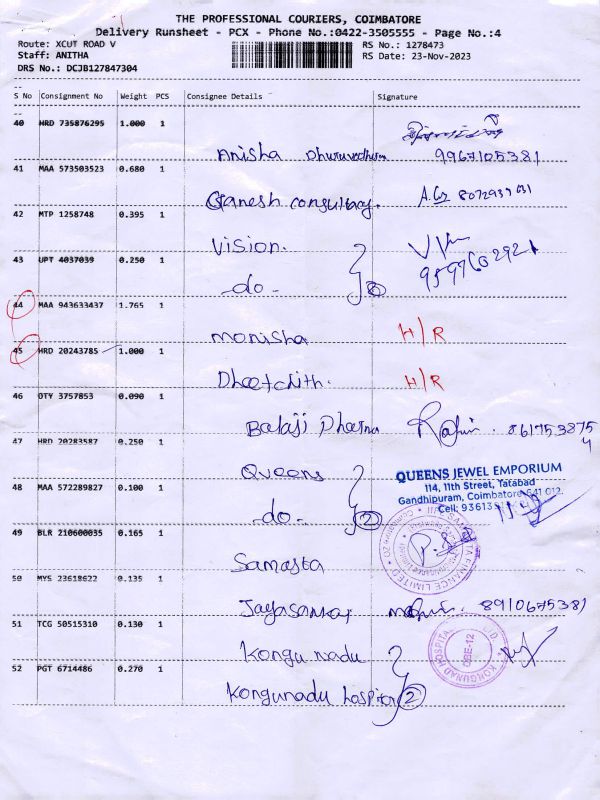 THE PROFESSIONAL COURIERS, COIMBATORE
Delivery Runsheet - PCX - Phone No.:0422-3505555 - Page No.:4
Route: XCUT ROAD V RS No.: 1278473
Staff: ANITHA RS Date: 23-Nov-2023
DRS No.: DCJB127847304
S No Consignment No Weight PCS Consignee Details Signature
40 HRD 735876295 1.000 1
Anisha 9967105381
41 MAA 573503523 0.680 1
Ganesh consultacy.
42 MTP 1258748 0.395 1
Vision.
43 UPT 4037039 0.250 1
-do- 2
44 MAA 943633437 1.765 1
monisha H/R
45 HRD 20243785 1.000 1
H/R
46 OTY 3757853 0.090 1
Balaji 8617538754
47 HRD 20283587 0.250 1
Queens
QUEENS JEWEL EMPORIUM
114, 11th Street, Tatabad
48 MAA 572289827 0.100 1
Gandhipuram, Coimbatore 641 012.
Cell: 9361
-do- 2
49 BLR 210600035 0.165 1
Samasta
50 MYS 23618622 0.135 1
8910675381
51 TCG 50515310 0.130 1
Kongu nadu
CBE-12
52 PGT 6714486 0.270 1
Kongunadu hospital 2